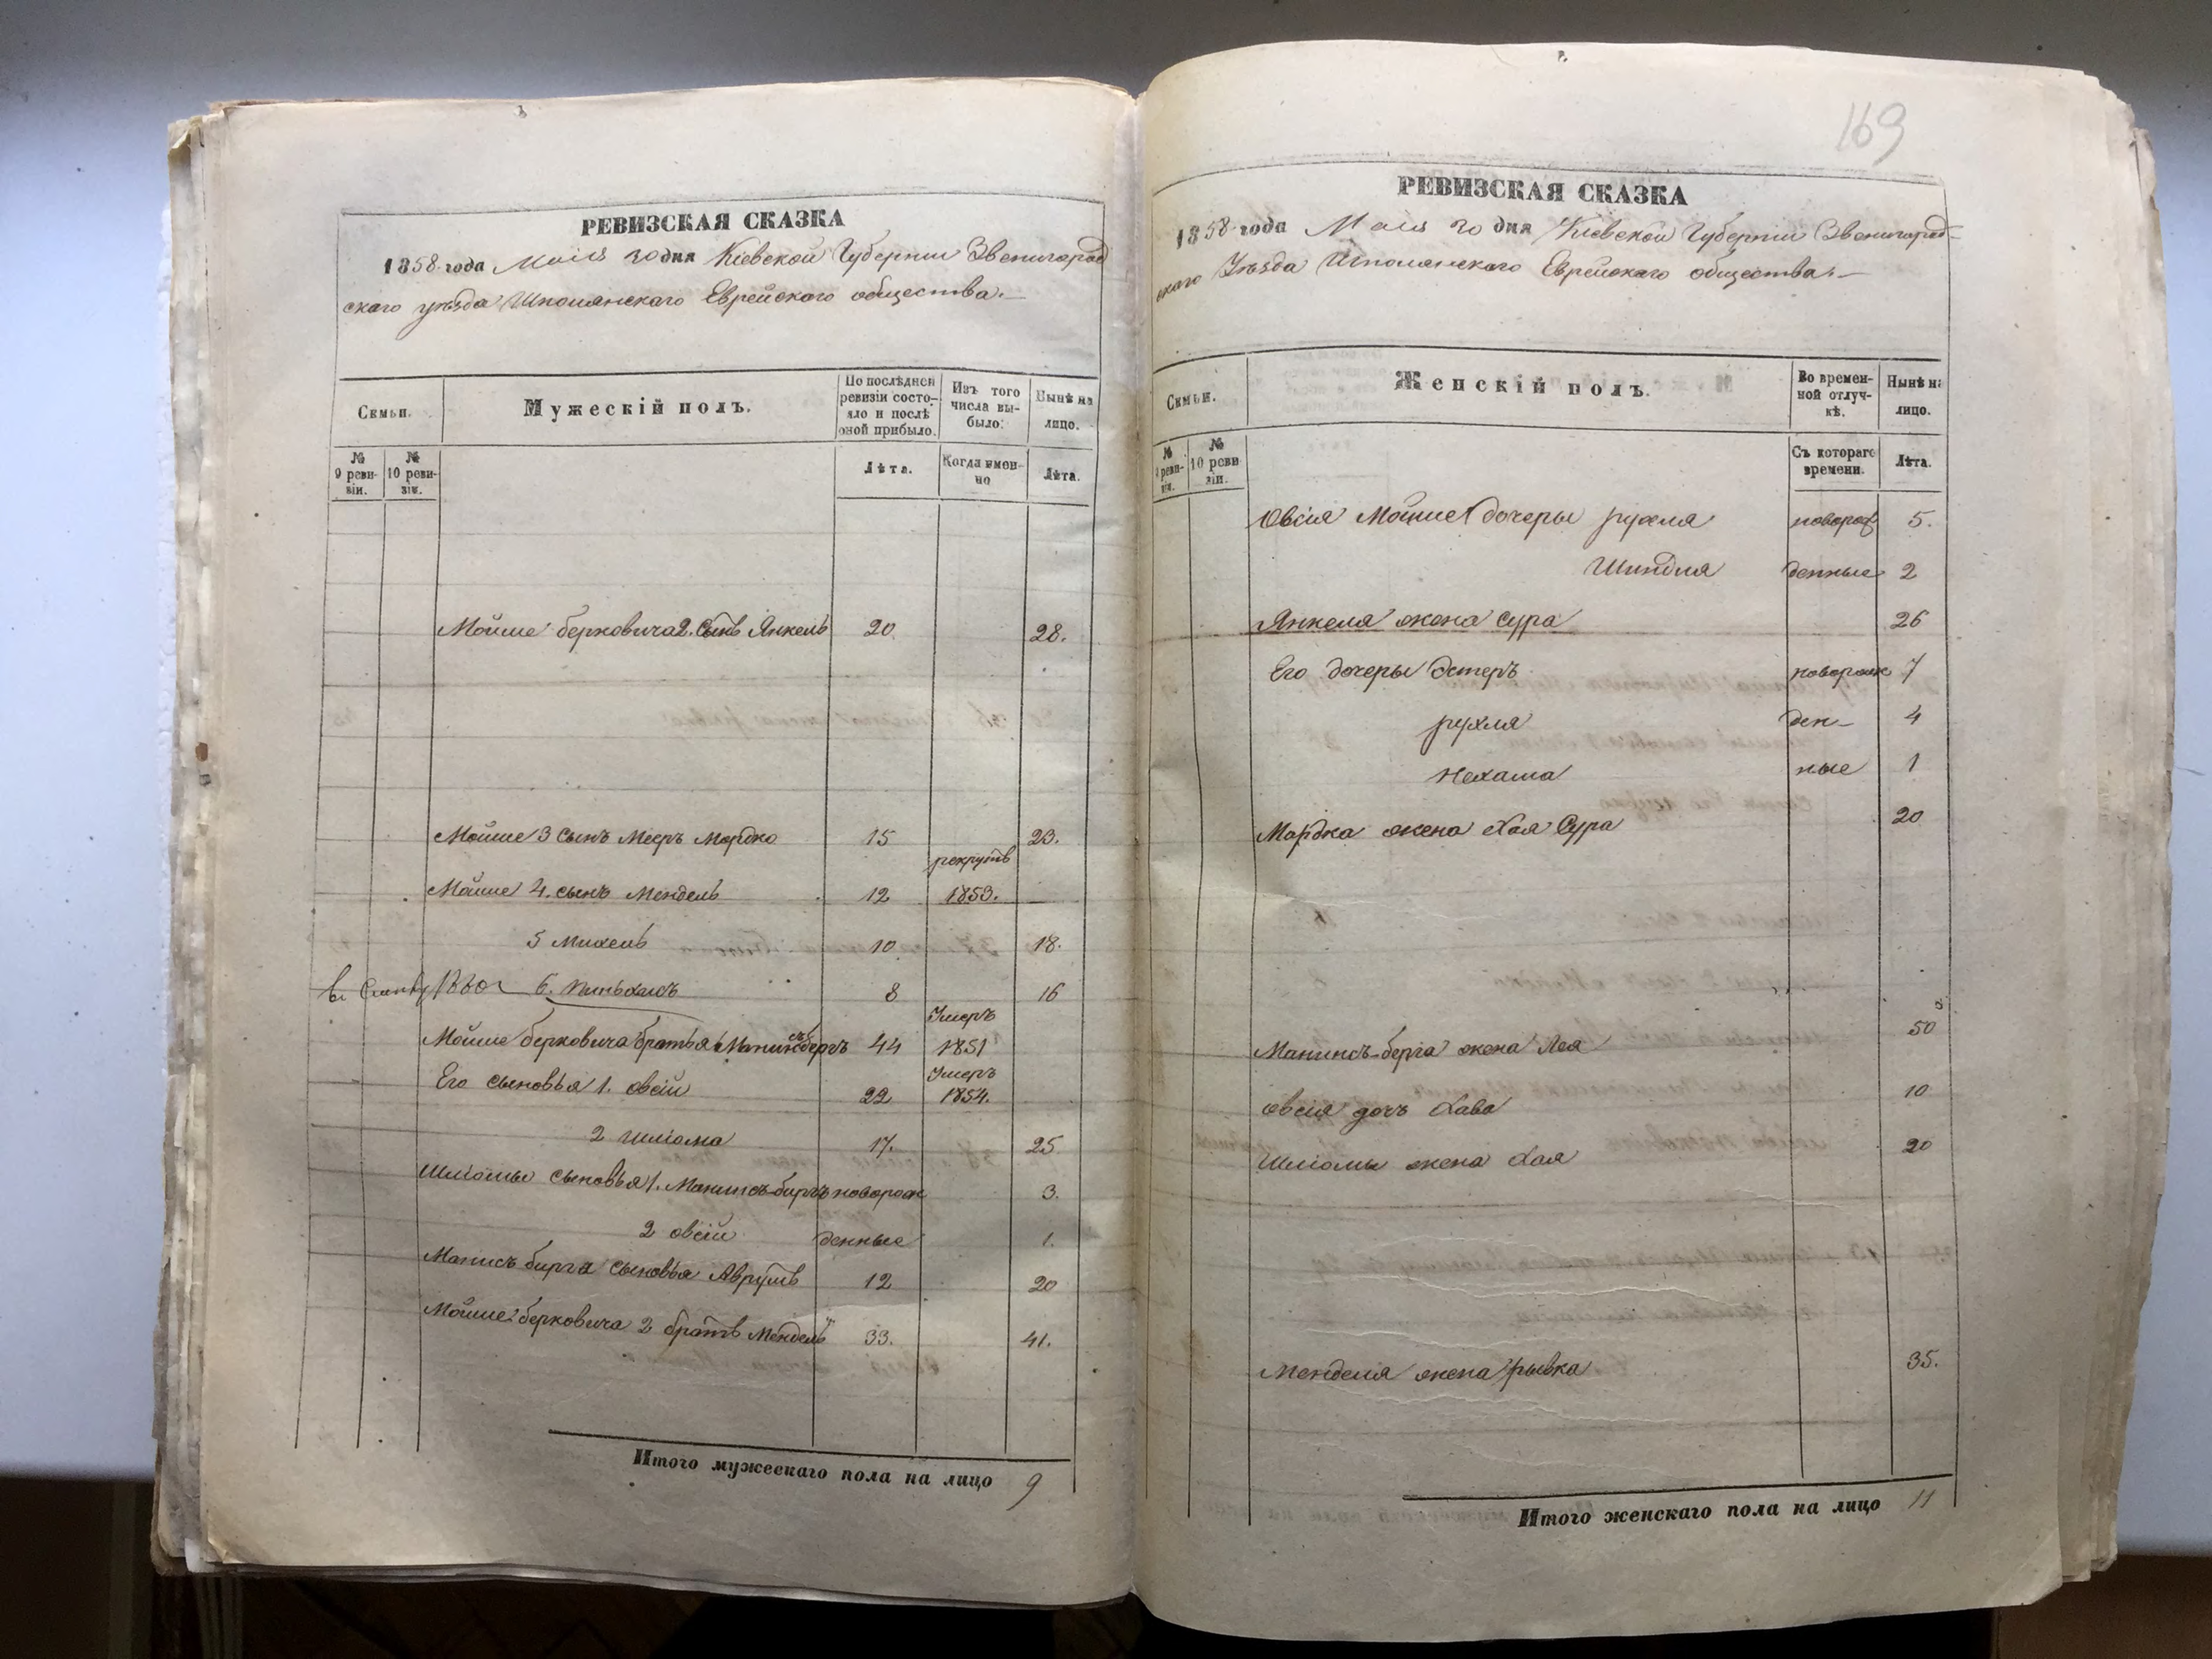 РЕВИЗСКАЯ СКАЗКА
1858 года Маія 20 дня Кіевской Губерніи Звенигород
скаго уѣзда Шполянскаго Еврейскаго общества.
Семьи.
Мужескій полъ.
По послѣдней ревизіи состояло и послѣ оной прибыло.
Изъ того числа выбыло:
Нынѣ на лицо.
№ 9 ревизіи.
№ 10 ревизіи.
Лѣта.
Когда именно
Лѣта.
Мойше Берковича 2. Сынъ Янкель 20. 28.
Мойше 3 Сынъ Мееръ Мордко 15 23.
рекрутъ
Мойше 4. сынъ Мендель 12 1853.
5 Михель 10. 18.
1860 6. Пиньхасъ 8 16
Умеръ
Мойше Берковича братья 44 1851
Умеръ
Его сыновья 1. Овсій 22 1854.
2 Шліома 17. 25
Шліомы сыновья 1. Манисъ-бергъ новорож 3.
2 Овсій денные 1.
Манисъ берга сыновья Аврумъ 12 20
Мойше Берковича 2 братъ Мендель 33. 41.
Итого мужескаго пола на лицо 9
169
РЕВИЗСКАЯ СКАЗКА
1858 года Маія 20 дня Кіевской Губерніи Звенигород-
скаго Уѣзда Шполянскаго Еврейскаго общества.
Семьи.
Женскій полъ.
Во временной отлучкѣ.
Нынѣ на лицо.
№ 9 ревизіи.
№ 10 ревизіи.
Съ котораго времени.
Лѣта.
Овсія Мойше дочеры рухля новорож 5.
Шиндля денные 2
Янкеля жена Сура 26
Его дочеры Эстеръ новорож 7
рухля ден- 4
Нехама ные 1
Мордка жена Хая Сура 20
Манисъ-берга жена Лея 50
Овсія дочь Хава 10
Шліомы жена Хая 20
Менделя жена рывка 35.
Итого женскаго пола на лицо 11